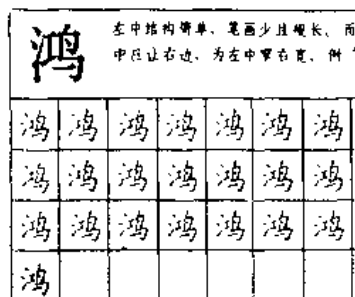 鸿
左中结构简单、笔画少且瘦长、而
中应让右边、为左中窄右宽、例
鸿 鸿 鸿 鸿 鸿 鸿 鸿
鸿 鸿 鸿 鸿 鸿 鸿 鸿
鸿 鸿 鸿 鸿 鸿 鸿 鸿
鸿